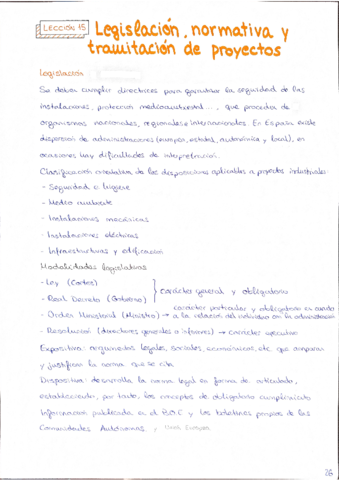 LECCIÓN 15
Legislación, normativa y
tramitación de proyectos
Legislación
Se deben cumplir directrices para garantizar la seguridad de las
instalaciones, protección medioambiental..., que proceden de
organismos nacionales, regionales e internacionales. En España existe
dispersión de administraciones (europea, estatal, autonómica y local), en
ocasiones hay dificultades de interpretación.
Clasificación orientativa de las disposiciones aplicables a proyectos industriales:
- Seguridad e higiene
- Medio ambiente
- Instalaciones mecánicas
- Instalaciones eléctricas
- Infraestructuras y edificación
Modalidades legislativas
- Ley (Cortes)
- Real Decreto (Gobierno)
carácter general y obligatorio
- Orden Ministerial (Ministro) → carácter particular y obligatorio en cuanto
a la relación del individuo con la administración
- Resolución (directores generales e inferiores) → carácter ejecutivo
Expositiva: argumentos legales, sociales, económicos, etc que amparan
y justifican la norma que se cita
Dispositiva: desarrolla la norma legal en forma de articulado,
estableciendo, por tanto, los conceptos de obligatorio cumplimiento
Información publicada en el BOE y los boletines propios de las
Comunidades Autónomas
26